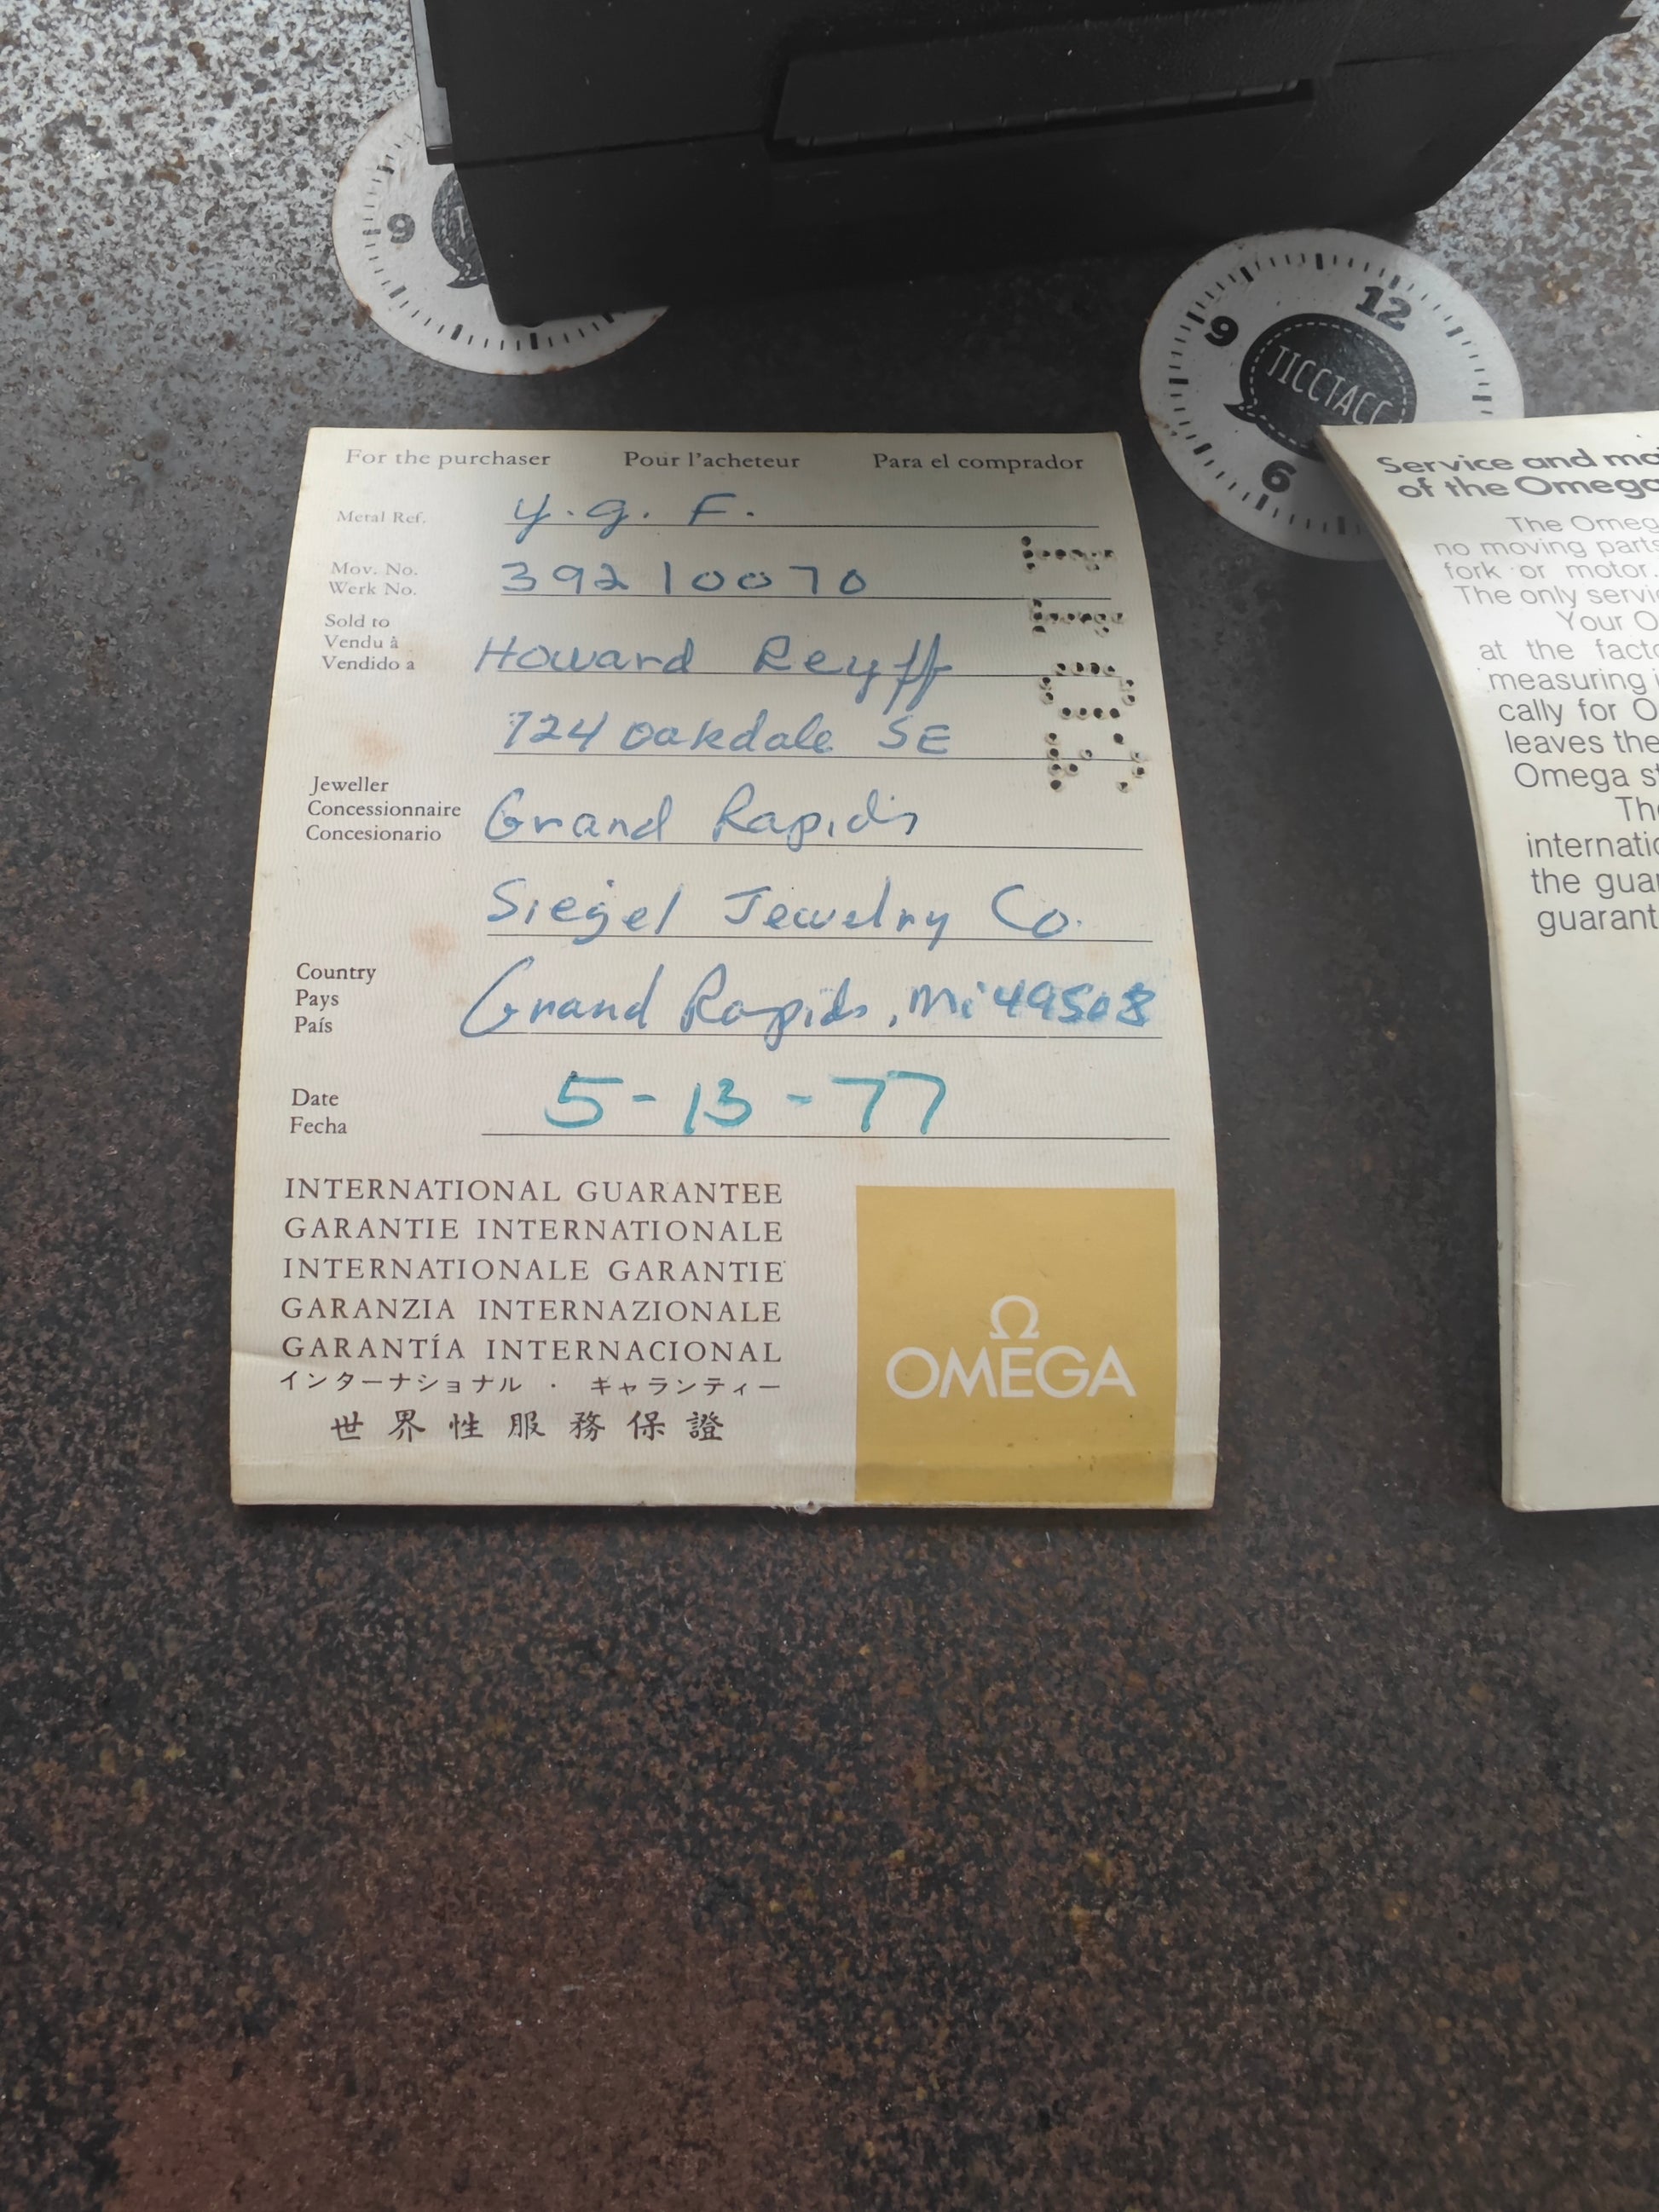 9
12
9
TICCTACC
6
For the purchaser Pour l'acheteur Para el comprador
Metal Ref. y.g. F.
Mov. No.
Werk No. 39210070
Sold to
Vendu à
Vendido a Howard Reyff
724 Oakdale SE
Jeweller
Concessionnaire
Concesionario Grand Rapids
Siegel Jewelry Co.
Country
Pays
País Grand Rapids, Mi 49508
Date
Fecha 5-13-77
INTERNATIONAL GUARANTEE
GARANTIE INTERNATIONALE
INTERNATIONALE GARANTIE
GARANZIA INTERNAZIONALE
GARANTÍA INTERNACIONAL
インターナショナル · ギャランティー
世界性服務保證
Ω
OMEGA
Service and
of the Omega
The
no moving parts
fork or motor.
The only
Your
at the
measuring
cally for
leaves the
Omega
the
guarant